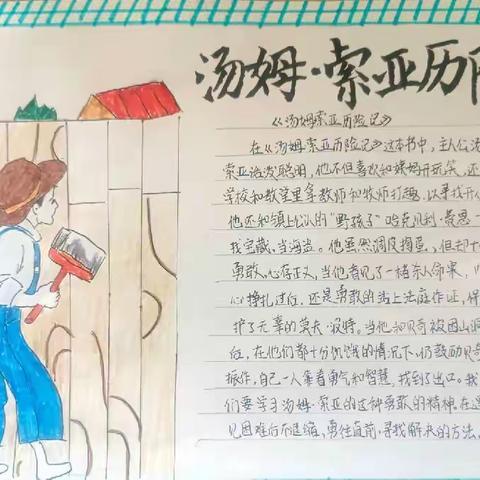 汤姆·索亚历险
《汤姆索亚历险记》
在《汤姆·索亚历险记》这本书中,主人公汤
索亚活泼聪明,他不但喜欢和姨妈开玩笑,还
学校和教堂里拿教师和牧师打趣,以寻找开心
他还和镇上公认的"野孩子"哈克贝利·费恩一
找宝藏、当海盗。他虽然调皮捣蛋,但却十
勇敢、心存正义,当他看见了一桩杀人命案,
心挣扎过后,还是勇敢的站上法庭作证,保
护了无辜的莫夫·波特。当他和贝奇被困山洞
后,在他们都十分饥饿的情况下,仍鼓励贝奇
振作,自己一人拿着勇气和智慧,找到了出口。我
们要学习汤姆·索亚的这种勇敢的精神。在遇
见困难后不退缩,勇往直前,寻找解决的方法。